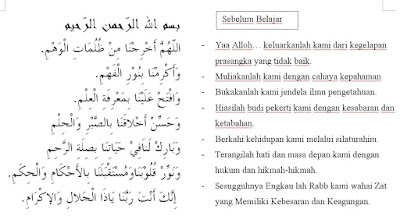 بسم الله الرّحمن الرّحيم
اَللّٰهُمَّ أَخْرِجْنَا مِنْ ظُلُمَاتِ الْوَهْمِ.
وَأَكْرِمْنَا بِنُوْرِ الْفَهْمِ.
وَافْتَحْ عَلَيْنَا بِمَعْرِفَةِ الْعِلْمِ.
وَحَسِّنْ أَخْلاَقَنَا بِالصَّبْرِ وَالْحِلْمِ
وَبَارِكْ لَنَافِي حَيَاتِنَا بِصِلَةِ الرَّحِمِ
وَنَوِّرْ قُلُوْبَنَاوَمُسْتَقْبَلَنَا بِالأَحْكَامِ وَالْحِكَمِ.
إِنَّكَ أَنْتَ رَبَّنَا يَاذَا الْجَلاَلِ وَالإِكْرَامِ.
Sebelum Belajar
- Yaa Alloh… keluarkanlah kami dari kegelapan
prasangka yang tidak baik.
- Muliakanlah kami dengan cahaya kepahaman
- Bukakanlah kami jendela ilmu pengetahuan.
- Hiasilah budi pekerti kami dengan kesabaran dan
ketabahan.
- Berkahi kehidupan kami melalui silaturahim.
- Terangilah hati dan masa depan kami dengan
hukum dan hikmah-hikmah.
- Sesugguhnya Engkau lah Rabb kami wahai Zat
yang Memiliki Kebesaran dan Keagungan.